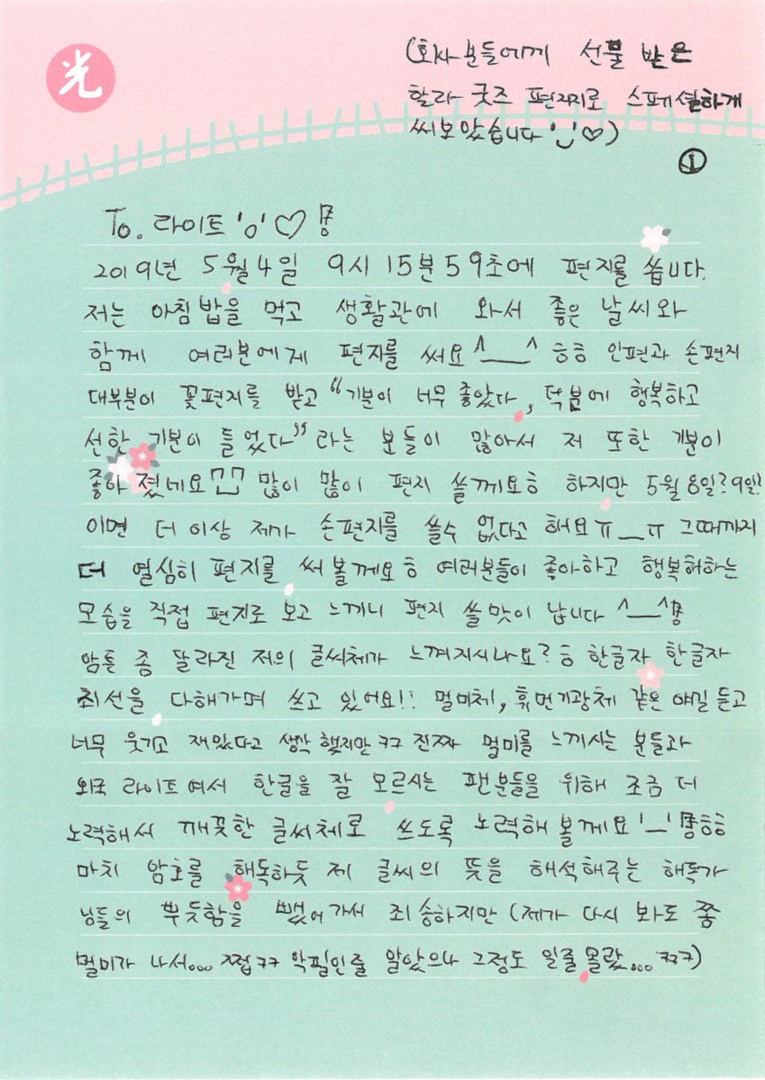 光
(회사분들에게 선물 받은
할라 굿즈 편지지로 스페셜하게
써보았습니다 '◡'♡)
①
To. 라이트 'o' ♡
2019년 5월 4일 9시 15분 59초에 편지를 씁니다.
저는 아침밥을 먹고 생활관에 와서 좋은 날씨와
함께 여러분에게 편지를 써요 ^__^ ㅎㅎ 인편과 손편지
대부분이 꽃편지를 받고 "기분이 너무 좋았다, 덕분에 행복하고
선한 기분이 들었다" 라는 분들이 많아서 저 또한 기분이
좋아 졌네요 많이 많이 편지 쓸께요ㅎ 하지만 5월 8일?9일?
이면 더 이상 제가 손편지를 쓸수 없다고 해요 ㅠ__ㅠ 그때까지
더 열심히 편지를 써 볼께요ㅎ 여러분들이 좋아하고 행복해하는
모습을 직접 편지로 보고 느끼니 편지 쓸 맛이 납니다 ^__^
암튼 좀 달라진 저의 글씨체가 느껴지시나요?ㅎ 한글자 한글자
최선을 다해가며 쓰고 있어요!! 멀미체, 휴먼기광체 같은 얘길 듣고
너무 웃기고 재밌다고 생각 했지만 ㅋㅋ 진짜 멀미를 느끼시는 분들과
외국 라이트여서 한글을 잘 모르시는 팬분들을 위해 조금 더
노력해서 깨끗한 글씨체로 쓰도록 노력해 볼께요 '_' ㅎㅎ
마치 암호를 해독하듯 제 글씨의 뜻을 해석해주는 해독가
님들의 뿌듯함을 뺐어가서 죄송하지만 (제가 다시 봐도 쫌
멀미가 나서... 쩝ㅋㅋ 악필인줄 알았으나 그정도 일줄 몰랐... ㅋㅋㅋ)